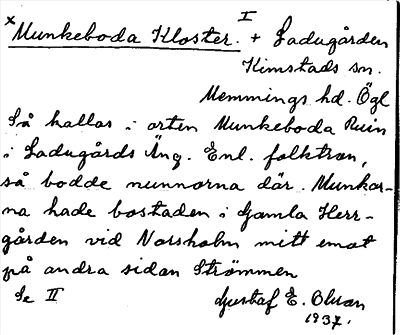 I
x Munkeboda Kloster. + Ladugården
Kimstads sn.
Memmings hd. Ögl
Så kallas i orten Munkeboda Ruin
i Ladugårds Äng. Enl. folktron,
så bodde nunnorna där. Munkar-
na hade bostaden i Gamla Herr-
gården vid Norsholm mitt emot
på andra sidan Strömmen
Se II
Gustaf E. Olsson
1937.